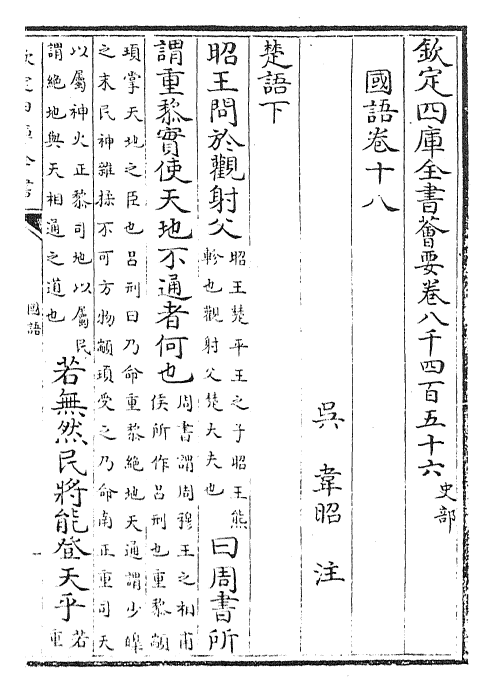 欽定四庫全書薈要卷八千四百五十六 史部
國語卷十八
吳 韋昭 注
楚語下
昭王問於觀射父昭王楚平王之子昭王熊軫也觀射父楚大夫也曰周書所
謂重黎實使天地不通者何也周書謂周穆王之相甫侯所作呂刑也重黎顓
頊掌天地之臣也呂刑曰乃命重黎絶地天通謂少皥
之末民神雜揉不可方物顓頊受之乃命南正重司天
以屬神火正黎司地以屬民
謂絶地與天相通之道也若無然民將能登天乎若重
國語
一